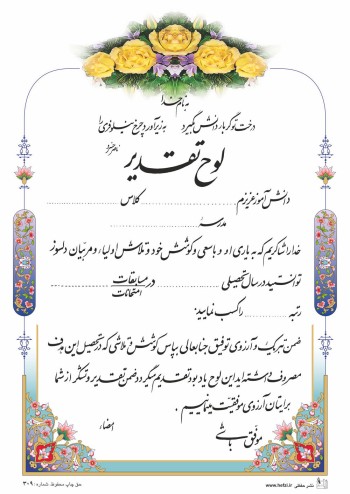 به نام خدا
درخت تو گر بار دانش بگیرد به زیر آوری چرخ نیلوفری را
ناصرخسرو
لوح تقدیر
دانش آموز عزیزم کلاس
مدرسه
خدا را شاکریم که به یاری او و با سعی و کوشش خود و تلاش اولیاء و مربیان دلسوز
توانستید در سال تحصیلی در مسابقات
امتحانات
رتبه را کسب نمایید.
ضمن تبریک و آرزوی توفیق جنابعالی بپاس کوشش و تلاشی که در تحصیل این هدف
مصروف داشته اید این لوح یادبود تقدیم میگردد ضمن تقدیر و تشکر از شما
برایتان آرزوی موفقیت مینماییم .
امضاء
موفق باشی
حق چاپ محفوظ شماره: ۳۰۹
www.hefzi.ir نشر حفظی